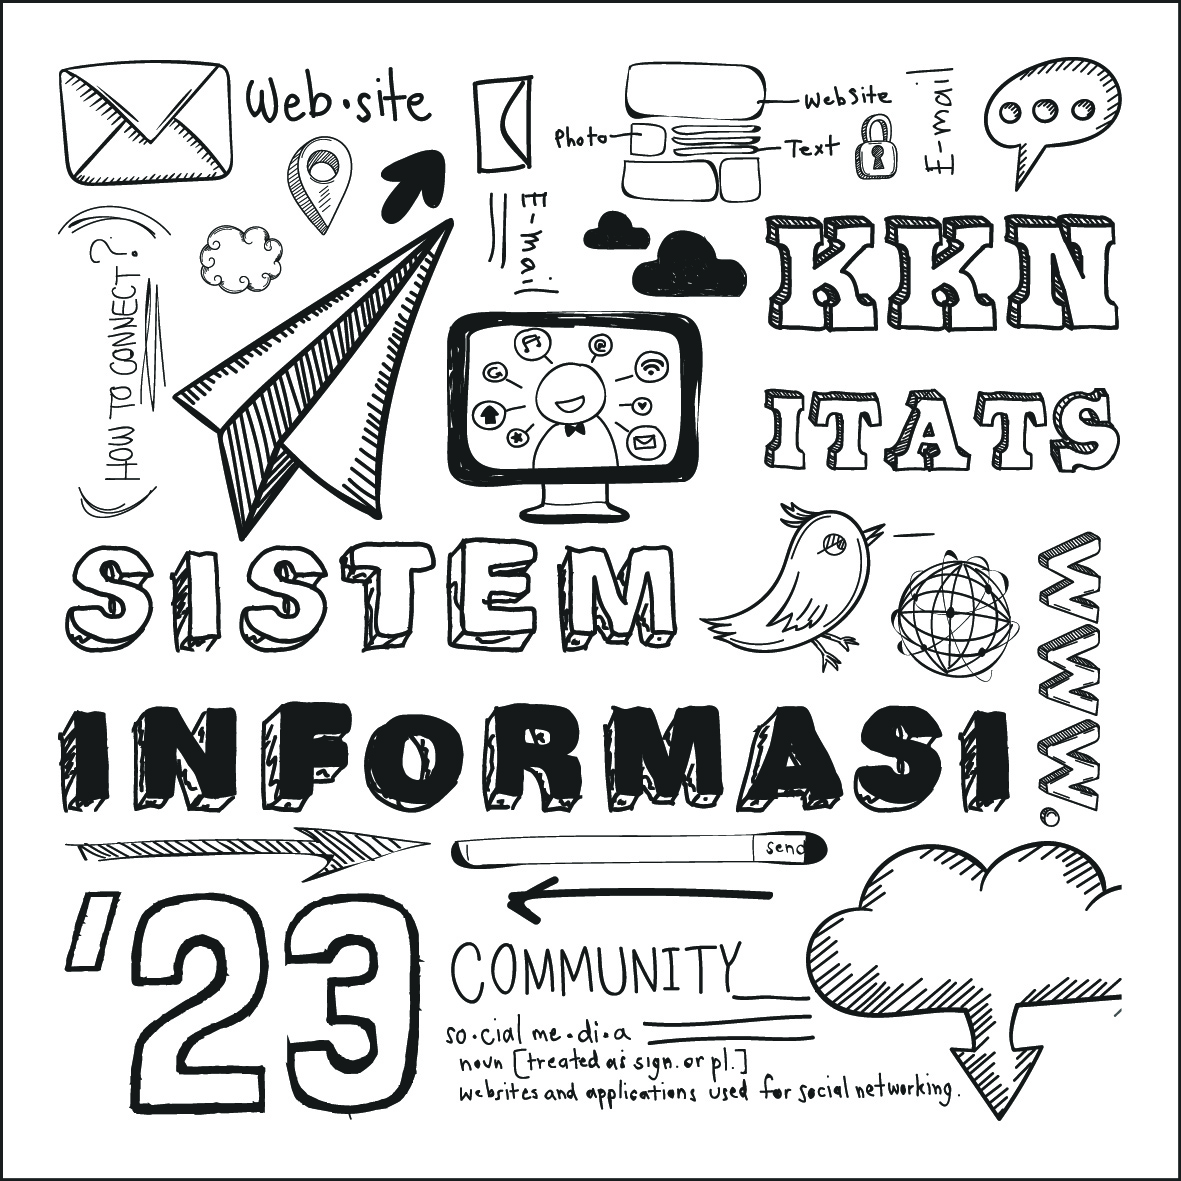 Web·site
WebSite
Photo
Text
E-mail
E-mail
HOW TO CONNECT?
KKN
ITATS
SISTEM
WWW.
INFORMASI
send
'23
COMMUNITY
so·cial me·di·a
noun [treated as sign. or pl.]
websites and applications used for social networking.